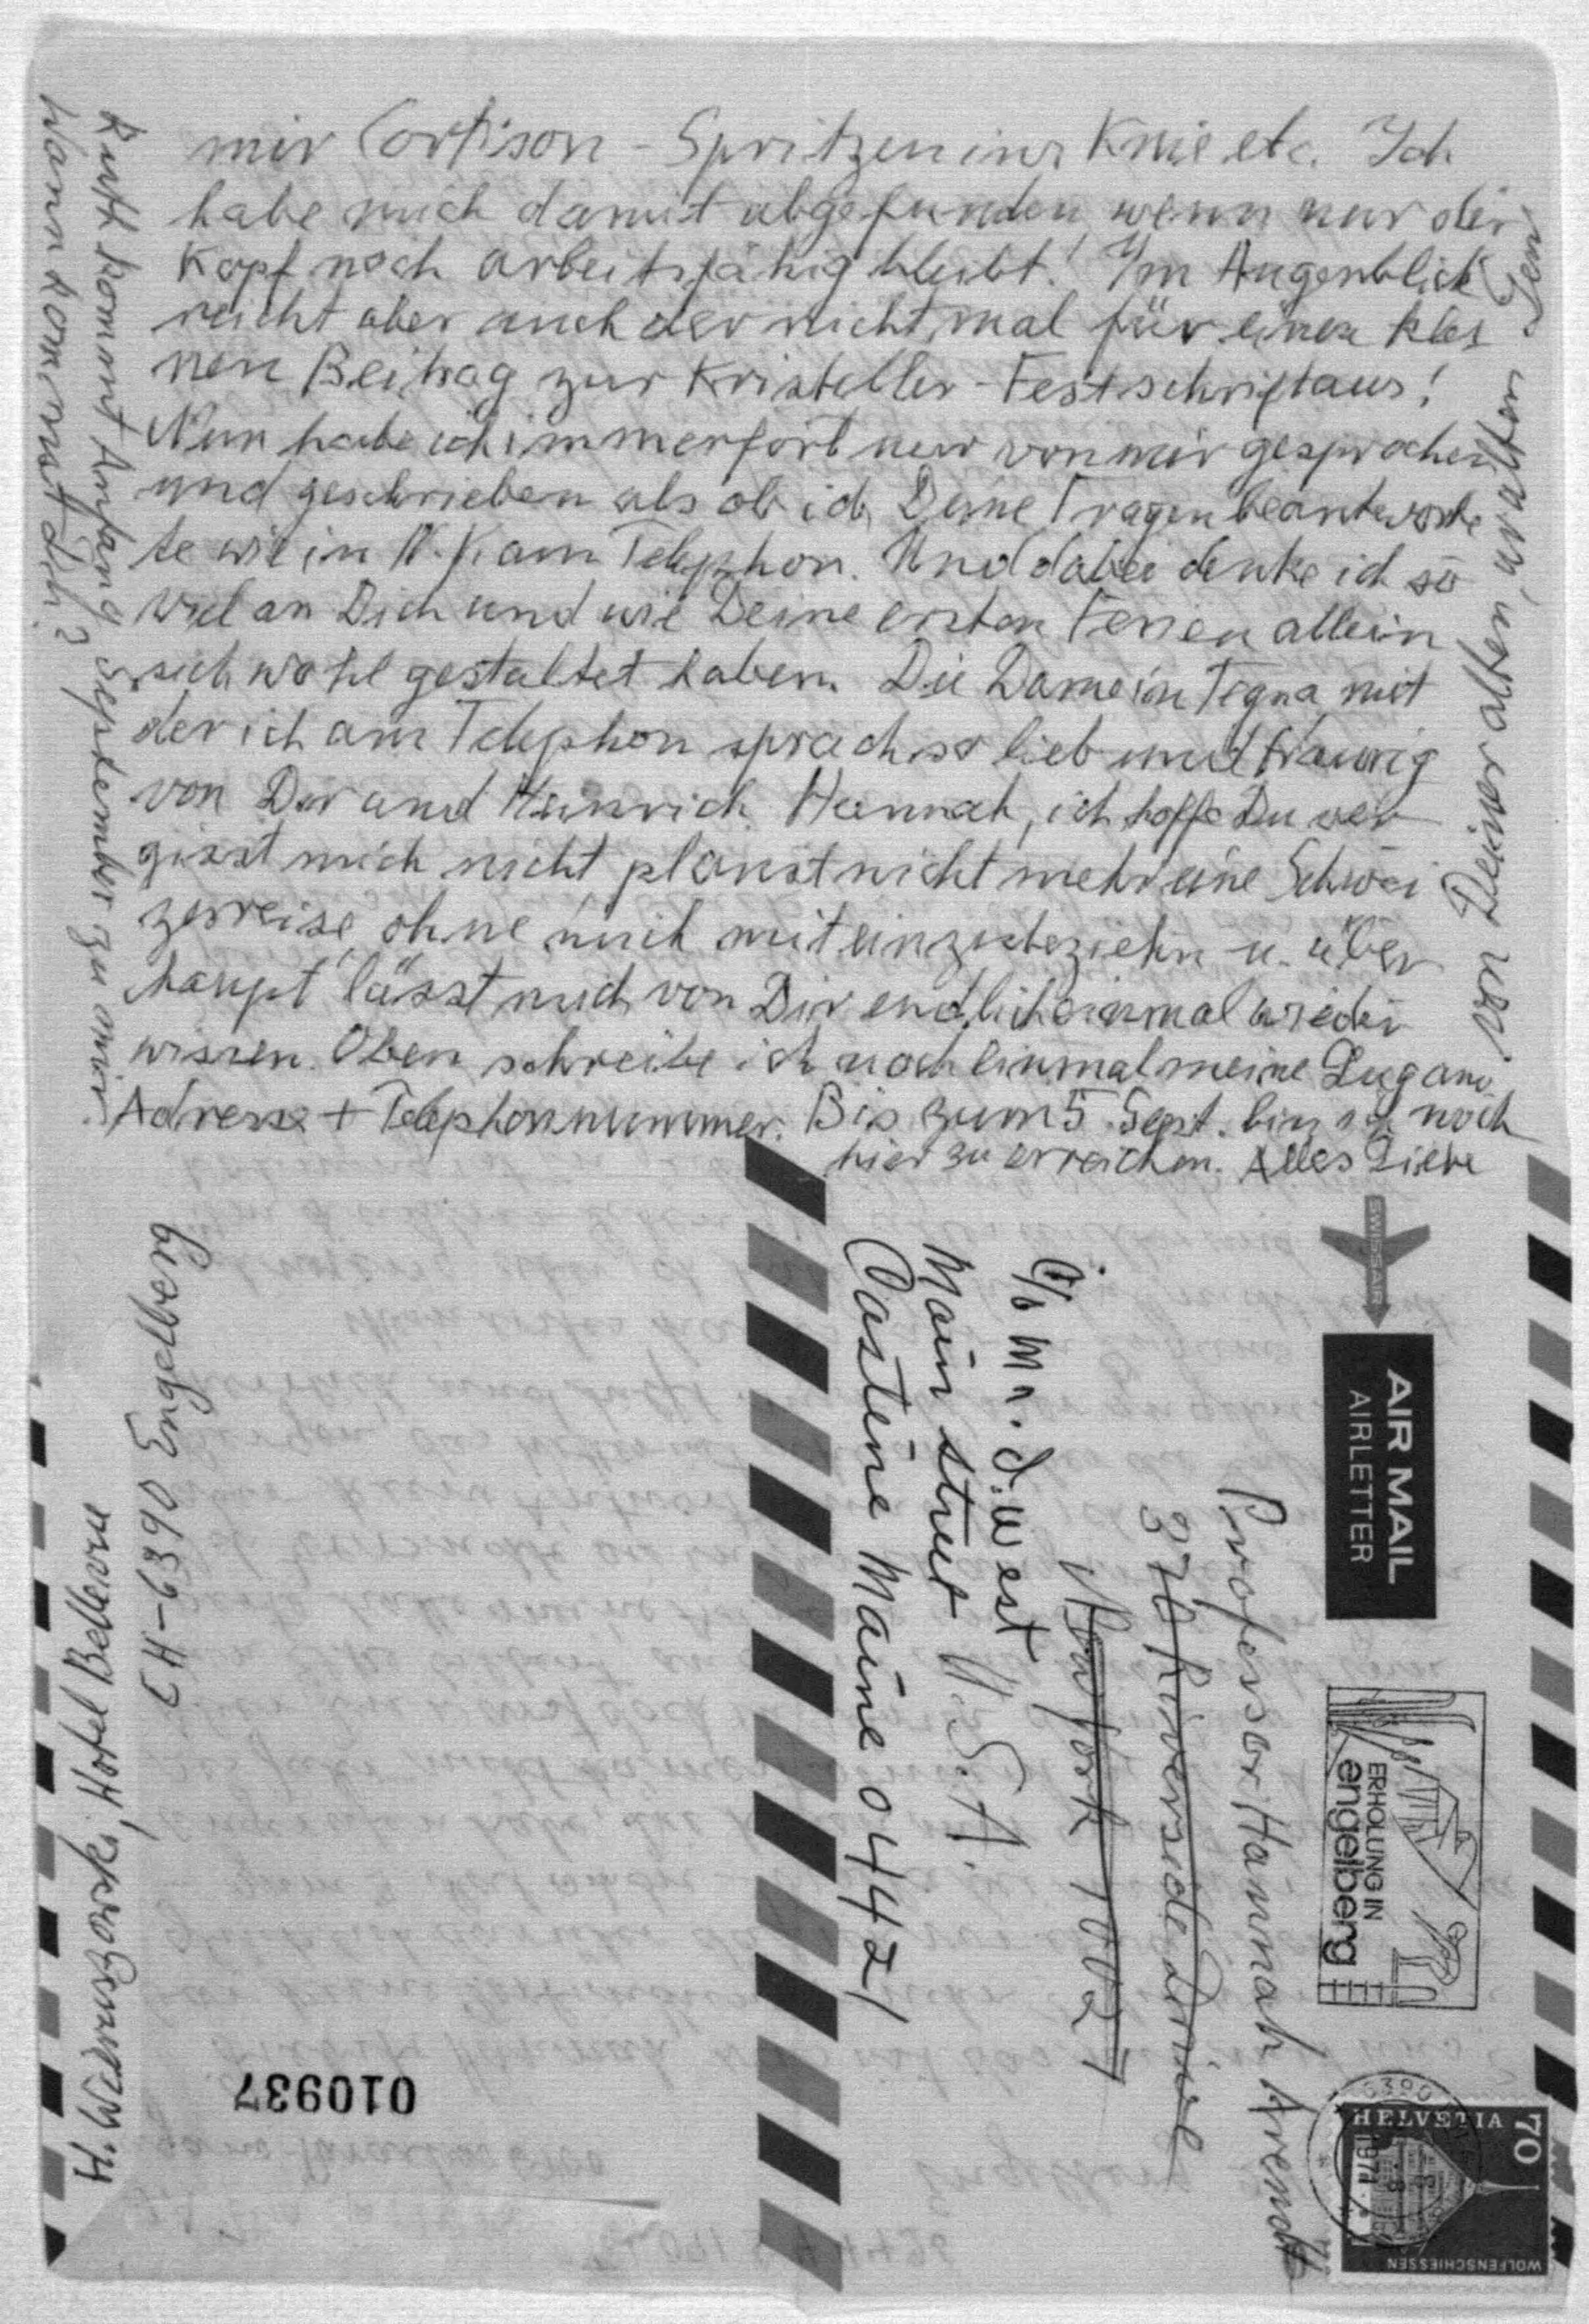 mir Cortison - Spritzen ins Knie etc. Ich
habe mich damit abgefunden, wenn nur der
Kopf noch arbeitsfähig bleibt! Im Augenblick
reicht aber auch der nicht mal für einen klei
nen Beitrag zur Kristeller - Festschrift aus!
Nun habe ich immerfort nur von mir gesprochen
und geschrieben als ob ich Deine Fragen beantworte
te wie in N.Y. am Telephon. Und dabei denke ich so
viel an Dich und wie Deine ersten Ferien allein
sich wohl gestaltet haben. Die Dame in Tegna mit
der ich am Telephon sprach so lieb und traurig
von Dir und Heinrich. Hannah, ich hoffe Du ver
gisst mich nicht planst nicht mehr eine Schwei
zerreise, ohne mich miteinzubeziehn u. über
haupt lässt mich von Dir endlich einmal wieder
wissen. Oben schreibe ich noch einmal meine Lugano
Adresse + Telephonnummer. Bis zum 5. Sept. bin ich noch
hier zu erreichen. Alles Liebe
von Deiner alten, uralten
Ruth kommt Anfang September zu mir.
Wann kommst Du?
SWISSAIR
AIR MAIL
AIRLETTER
ERHOLUNG IN
engelberg
HELVETIA 70
1971
WOLFENSCHIESSEN
Professor Hannah Arendt
370 Riverside Drive
New York 10027
c/o Mr. J. West
Main street U.S.A.
Castine Maine 04421
H. Wieruszowski, Hotel Bellevue
CH-6390 Engelberg
010937